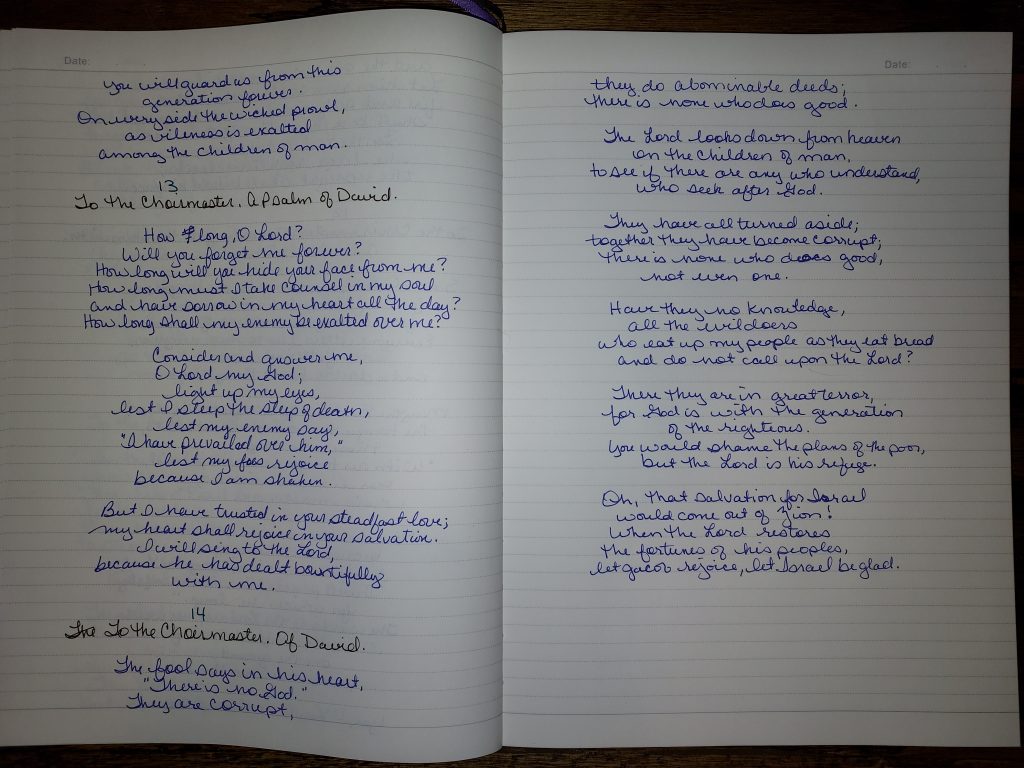 Date:
you will guard us from this
generation forever.
On every side the wicked prowl,
as vileness is exalted
among the children of man.
13
To the Choirmaster. A Psalm of David.
How long, O Lord?
Will you forget me forever?
How long will you hide your face from me?
How long must I take counsel in my soul
and have sorrow in my heart all the day?
How long shall my enemy be exalted over me?
Consider and answer me,
O Lord my God;
light up my eyes,
lest I sleep the sleep of death,
lest my enemy say,
"I have prevailed over him,"
lest my foes rejoice
because I am shaken.
But I have trusted in your steadfast love;
my heart shall rejoice in your salvation.
I will sing to the Lord,
because he has dealt bountifully
with me.
14
To the Choirmaster. Of David.
The fool says in his heart,
"There is no God."
They are corrupt,
Date:
they do abominable deeds;
there is none who does good.
The Lord looks down from heaven
on the children of man,
to see if there are any who understand,
who seek after God.
They have all turned aside;
together they have become corrupt;
there is none who does good,
not even one.
Have they no knowledge,
all the evildoers
who eat up my people as they eat bread
and do not call upon the Lord?
There they are in great terror,
for God is with the generation
of the righteous.
You would shame the plans of the poor,
but the Lord is his refuge.
Oh, that salvation for Israel
would come out of Zion!
When the Lord restores
the fortunes of his peoples,
let Jacob rejoice, let Israel be glad.